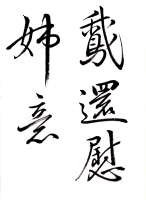 戲還慰
姊意